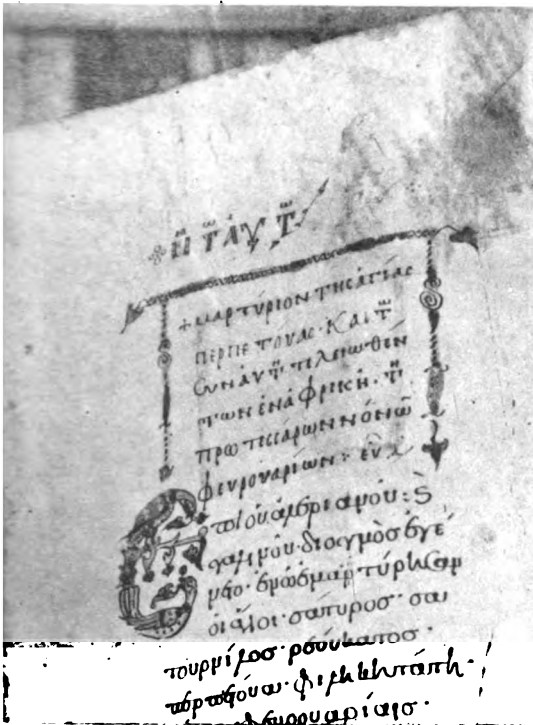 + μαρτύριον τῆς ἁγίας
περπετούας· καὶ τῶ
σὺν αὐτῆ τελειωθέν
των ἐν ἀφρικῆ· τῆ
πρὸ τεσσάρων νόνῶ
φευρουαρίων: εὐλ
Επὶ οὐαλεριανοῦ: ϗ
γαλιινοῦ· διογμὸς ἐγέ
νετο· ἐν ὧ ἐμαρτύρησαν
οἱ ἅγιοι· σάτυρος· σα
τουρνίλος· ρευκάτος·
περπετούα· φιλικητάτη·
φευρουαρίαις·